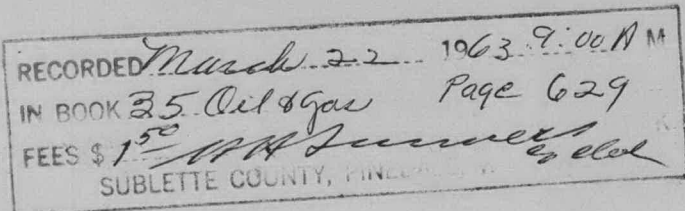 RECORDED March 22 1963 9:00 A M
IN BOOK 35 Oil & Gas Page 629
FEES $ 1 50
SUBLETTE COUNTY,